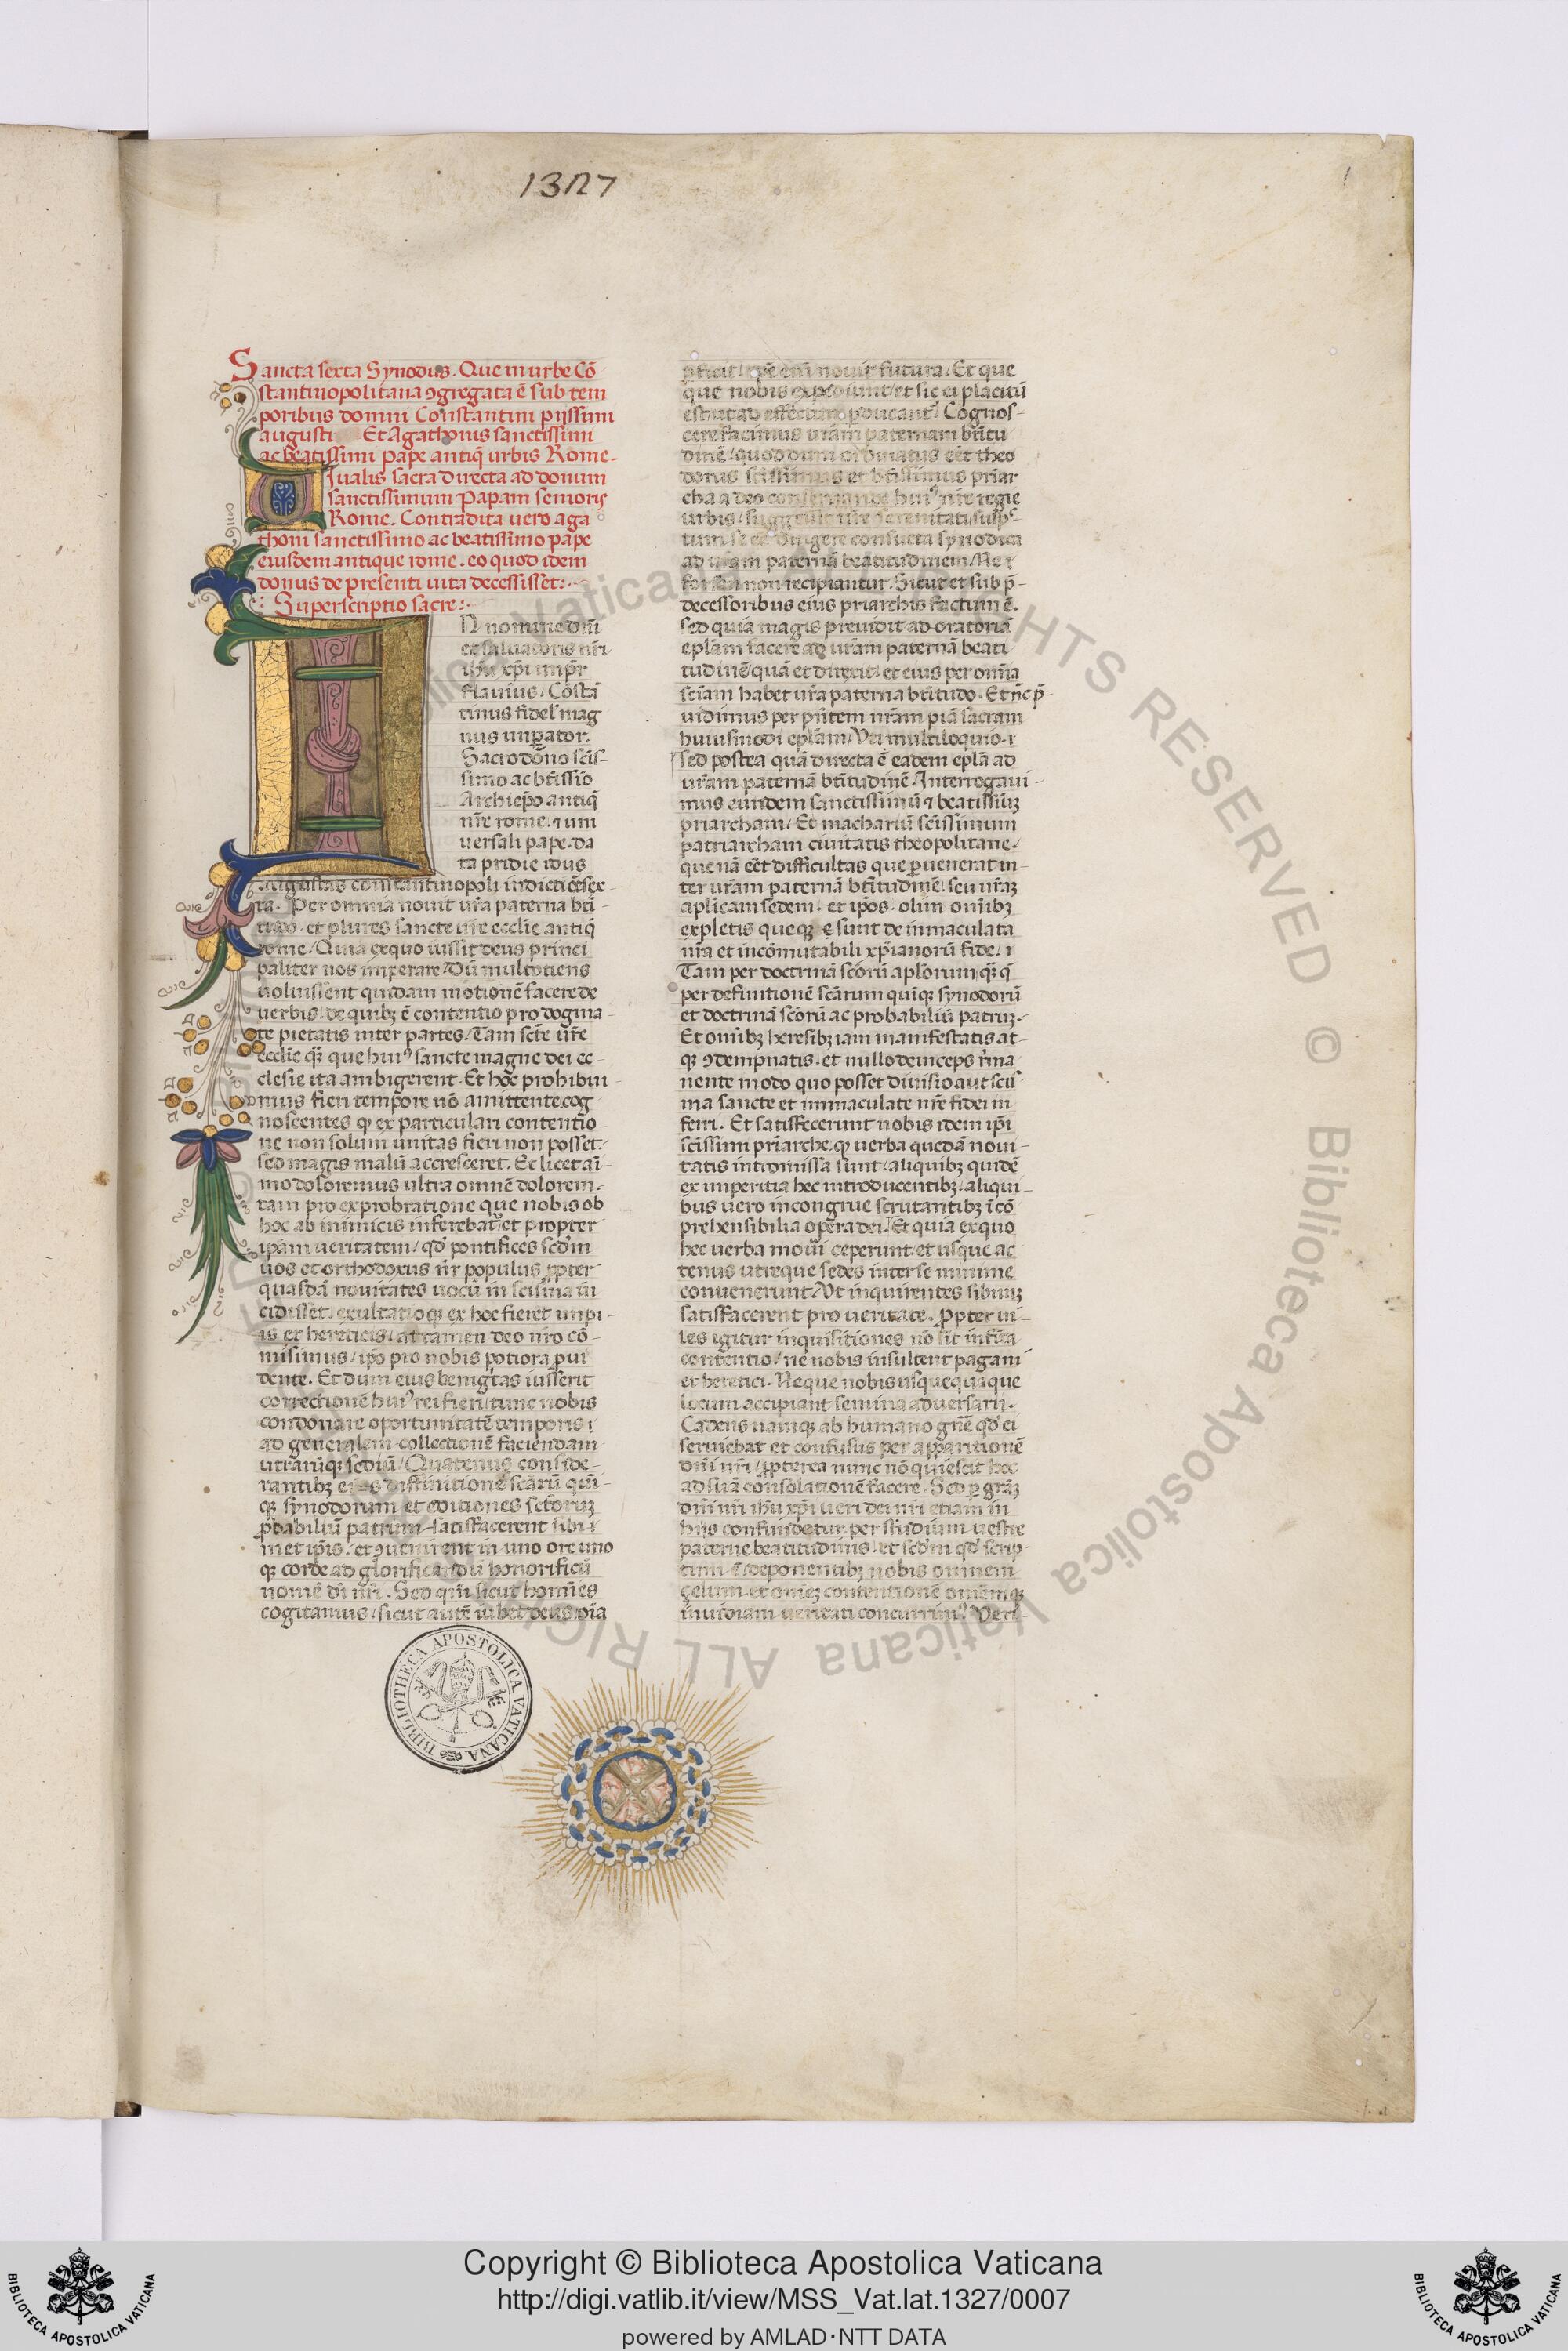 1327
1
Sancta sexta Synodus. Que in urbe Cō
stantinopolitana ꝯgregata ē sub tem
poribus domni Constantini pijssimi
augusti Et Agathonis sanctissimi
ac beatissimi Pape antiq̄ urbis Rome.
Qualis sacra directa ad donum
sanctissimum Papam senioris
Rome. Contradita uero aga
thoni sanctissimo ac beatissimo pape
eiusdem antique rome. eo quod idem
donus de presenti uita decessisset:.
Superscriptio sacre:.
IN nomine dn̄i
et saluatoris nr̄i
ihū xp̄i imꝑr
flauius/ Cōstā
tinus fidel' mag
nus imꝑator.
Sacro dōno scīs-
simo ac bt̄issīo
Archiepō antiq̄
nr̄e rome. ⁊ uni
uersali pape. da
ta pridie idus
Augustas constantinopoli indictiōe sex-
ta. Per omnia nouit ur̄a paterna bt̄i-
tudo. et plures sancte ur̄e ecclīe antiq̄
rome/ Quia exquo iussit deus princi
paliter nos imperare/ Dū multotiens
uoluissent quidam motionē facere de
uerbis/ de quibꝫ ē contentio pro dogma-
te pietatis inter partes/ Tam sct̄e ur̄e
ecclīe qꝫ que huiꝰ sancte magne dei ec-
clesie ita ambigerent. Et hoc prohibui-
mus fieri tempore nō amittente cog
noscentes ꝙ ex particulari contentio-
ne non solum unitas fieri non posset.
sed magis malū accresceret. Et licet aī-
mo doloremus ultra omnē dolorem.
tam pro exprobratione que nobis ob
hoc ab inimicis inferebat' et propter
ipsam ueritatem/ qd' pontifices scd'm
uos et orthodoxus nr̄ populus ꝓpter
quasdā nouitates uocū in scisma in
cidisset/ exultatioqꝫ ex hoc fieret impi-
is et hereticis/ attamen deo nr̄o cō-
misimus/ ipō pro nobis potiora ꝓui
dente. Et dum eius benigtas iusserit
correctionē huiꝰ rei fieri/ tunc nobis
condonare oportunitatē temporis ⁊
ad generalem collectionē faciendam
utrarūqꝫ sediū/ Quatenus conside-
rantibꝫ eis diffinitione scārū quī-
qꝫ synodorum et editiones sct̄oruꝫ
ꝓbabiliū patrum satisfacerent sibi-
met ip̄is. et ꝯuenirent in uno ore uno
qꝫ corde ad glorificandū honorificū
nomē dī nr̄i. Sed qm̄ sicut homīes
cogitamus/ sicut autē iubet deus oīa
ꝑficit/ ip̄e enī nouit futura/ Et que
que nobis expediunt/ et sic ei placitū
est/ ut ad effectum ꝑducant'/ Cognos-
cere facimus ur̄am paternam bt̄itu
dinē/ quod dum ordinatus eēt theo
dorus scīssimus et bt̄issimus priar
cha a deo conseruande huiꝰ nr̄e regie
urbis/ suggessit nr̄e serenitati susp̄c-
tum se eē dirigere consueta synodica
ad ur̄am paternā beatitudinem/ Ne
forsan non recipiantur. Sicut et sub p̄-
decessoribus eius priarchis factum ē.
Sed quia magis preuidit ad oratoriā
epl̄am facere ad ur̄am paternā beati
tudinē quā et direxit/ et eius per omīa
sciam habet ur̄a paterna bt̄itudo. Et nc̄ p̄-
uidimus per pn̄tem nr̄am piā sacram
huiusmodi epl̄am/ Uti multiloquio.
sed postea quā directa ē eadem epl̄a ad
ur̄am paternā bt̄itudinē/ Interrogaui-
mus eundem sanctissimū ⁊ beatissīuꝫ
priarcham/ Et machariū scīssimum
patriarcham ciuitatis theopolitane/
que nā eēt difficultas que ꝑuenerat in-
ter ur̄am paternā bt̄itudinē/ seu ur̄aꝫ
apl̄icam sedem. et ip̄os. olim omībꝫ
expletis queqꝫ sunt de inmaculata
nr̄a et incōmutabili xp̄ianorū fide/
Tam per doctrinā scōrū apl̄orum qꝫ q̄
per definitionē scārum quīqꝫ synodorū
et doctrinā scōrū ac probabiliū patruꝫ.
Et omībꝫ heresibꝫ iam manifestatis at-
qꝫ ꝯdempnatis. et nullo deinceps rꝫma
nente modo quo posset diuisio aut scis
ma sancte et immaculate nr̄e fidei in
ferri. Et satisfecerunt nobis idem ip̄i
scīssimi priarche. ꝙ uerba quedā noui-
tatis intromissa sunt/ aliquibꝫ quidē
ex imperitia hec introducentibꝫ/ aliqui-
bus uero incongrue scrutantibꝫ icō
prehensibilia opera dei. Et quia exquo
hec uerba moueri ceperunt/ et usque ac
tenus utreque sedes inter se minime
conuenerunt/ Ut inquirentes sibimꝫ
satisfacerent pro ueritate. Ppter ui-
les igitur inquisitiones nō sit infīta
contentio/ ne nobis insultent pagani
et heretici. Neque nobis usquequaque
locum accipiant semina aduersarii.
Cadens namqꝫ ab humano gn̄e qd' ei
seruiebat et confusus per apparitionē
dn̄i nr̄i/ ꝓpterea nunc nō quiescit hec
ad suā consolationē facere. Sed ꝑ gr̄aꝫ
dn̄i nr̄i ihū xp̄i ueri dei nr̄i etiam in
hijs confundetur per studium uestre
paterne beatitudinis/ et scd'm qd' scrip-
tum ē deponentibꝫ nobis omnem
çelum et omēꝫ contentionē omēmqꝫ
inuidiam ueritati concurrim'. Deri-
BIBLIOTHECA APOSTOLICA VATICANA
© Biblioteca Apostolica Vaticana ALL RIGHTS RESERVED
Copyright © Biblioteca Apostolica Vaticana
http://digi.vatlib.it/view/MSS_Vat.lat.1327/0007
powered by AMLAD·NTT DATA
BIBLIOTECA APOSTOLICA VATICANA
BIBLIOTECA APOSTOLICA VATICANA